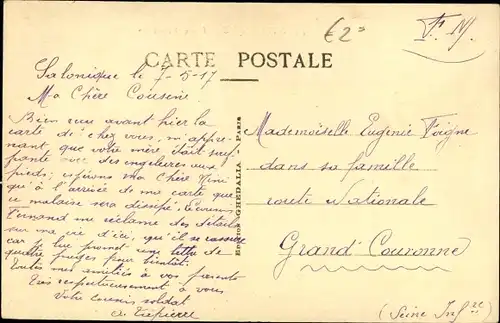 €2
F. M.
CARTE POSTALE
Salonique le 7-5-17
Ma Chère Cousine
Bien reçu avant hier la
carte de chez vous, m'appre-
nant, que votre mère était
des engelures aux
pieds; espérons ma Chère
qu'à l'arrivée de ma carte que
ce malaise sera dissipé.
Fernand me réclame des détails
sur ma vie d'ici, qu'il se
car je lui prend une lettre de
quatre pages pour bientôt.
Toutes mes amitiés à vos parents
Très respectueusement à vous
Votre cousin soldat
Editions GHEDALIA - Paris
Mademoiselle Eugenie Foigne
dans sa famille
route Nationale
Grand Couronne
(Seine Infre)